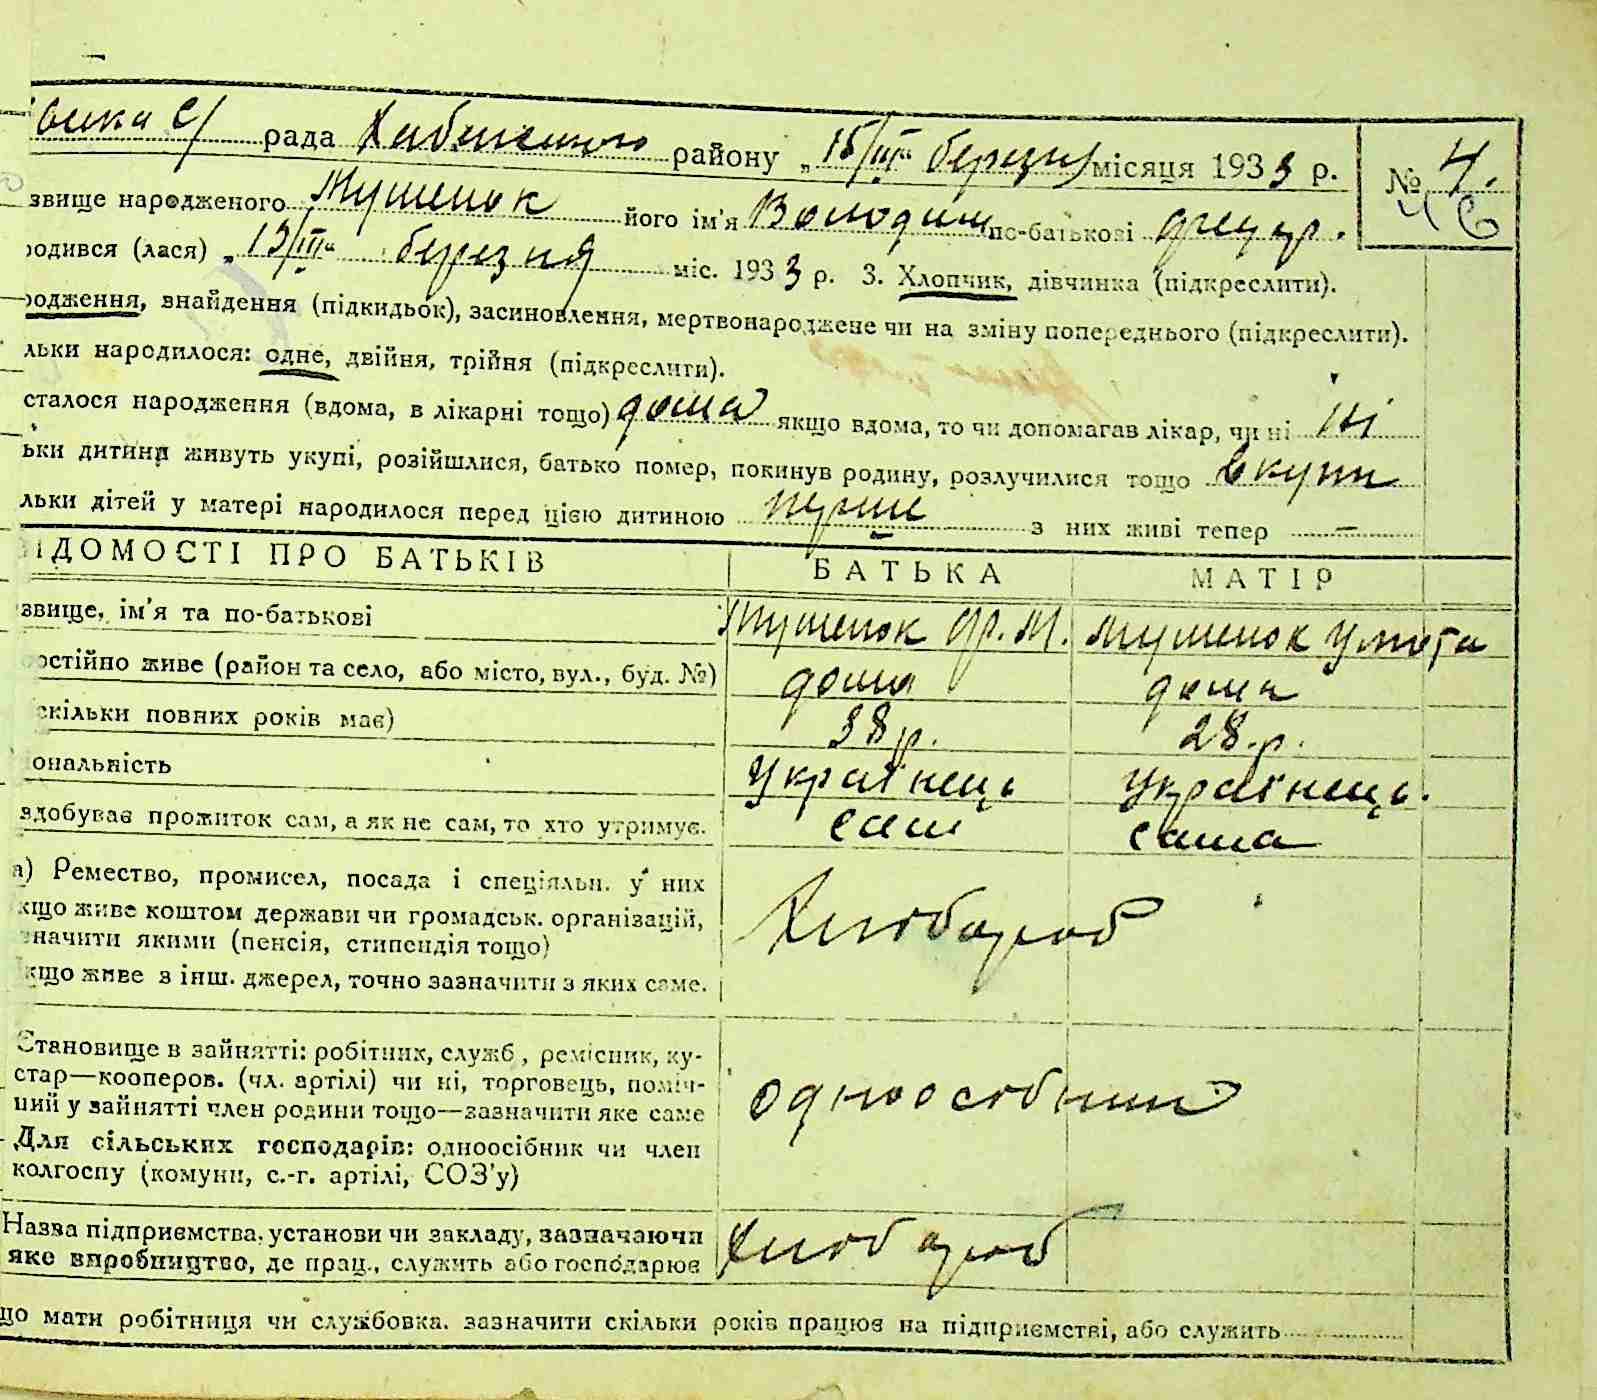 рада Хабенського району „15/III“ березня місяця 1933 р. № 4.
звище народженого Мушенок його ім'я Володим по-батькові
46
родився (лася) „13/III“ березня міс. 1933 р. 3. Хлопчик, дівчинка (підкреслити).
родження, знайдення (підкидьок), засиновлення, мертвонароджене чи на зміну попереднього (підкреслити).
льки народилося: одне, двійня, трійня (підкреслити).
сталося народження (вдома, в лікарні тощо) дома якщо вдома, то чи допомагав лікар, чи ні ні
ьки дитини живуть укупі, розійшлися, батько помер, покинув родину, розлучилися тощо вкупи
льки дітей у матері народилося перед цією дитиною перше з них живі тепер —
ІДОМОСТІ ПРО БАТЬКІВ БАТЬКА МАТІР
звище, ім'я та по-батькові Мушенок М. Мушенок
остійно живе (район та село, або місто, вул., буд. №) дома дома
скільки повних років має) 38 р. 28. р.
ональність Українець Українець.
здобуває прожиток сам, а як не сам, то хто утримує. сам сама
а) Ремество, промисел, посада і спеціяльн. у них
кщо живе коштом держави чи громадськ. організацій,
значити якими (пенсія, стипендія тощо)
кщо живе з інш. джерел, точно зазначити з яких саме.
Хлібороб
Становище в зайнятті: робітник, служб, ремісник, ку-
стар—кооперов. (чл. артілі) чи ні, торговець, поміч-
ний у зайнятті член родини тощо—зазначити яке саме
Для сільських господарів: одноосібник чи член
колгоспу (комуни, с.-г. артілі, СОЗ'у)
одноособник
Назва підприємства, установи чи закладу, зазначаючи
яке виробництво, де прац., служить або господарює
Хлібороб
що мати робітниця чи службовка. зазначити скільки років працює на підприємстві, або служить